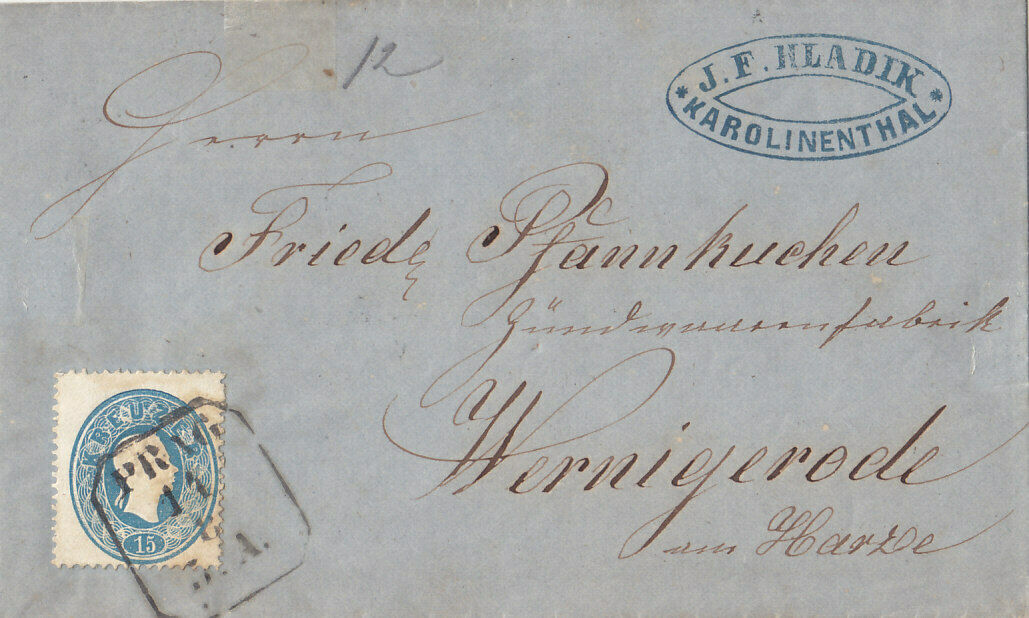 12
J. F. HLADIK
KAROLINENTHAL
Herrn
Friedr Pfannkuchen
Zündwaarenfabrik
Wernigerode
am Harze
KREUZER
15
PRAG
11
B. A.